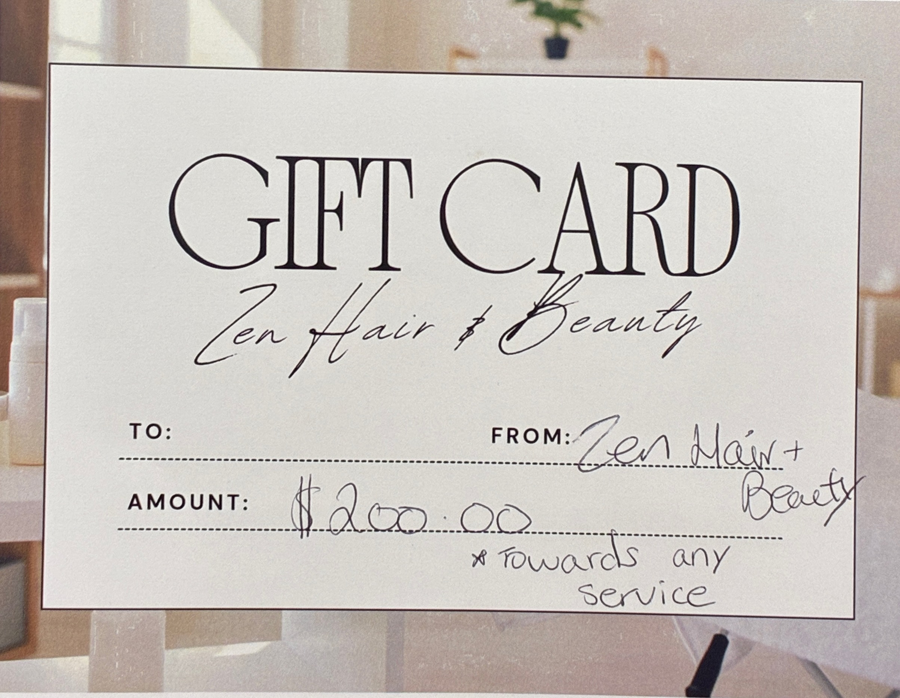 GIFT CARD
Zen Hair & Beauty
TO:
FROM: Zen Hair +
Beauty
AMOUNT: $200.00
* Towards any
service